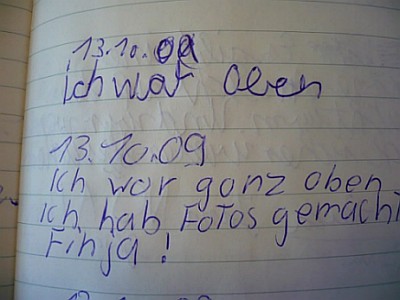 13.10.09
ich war oben
13.10.09
Ich war ganz oben
Ich hab Fotos gemacht
Finja!